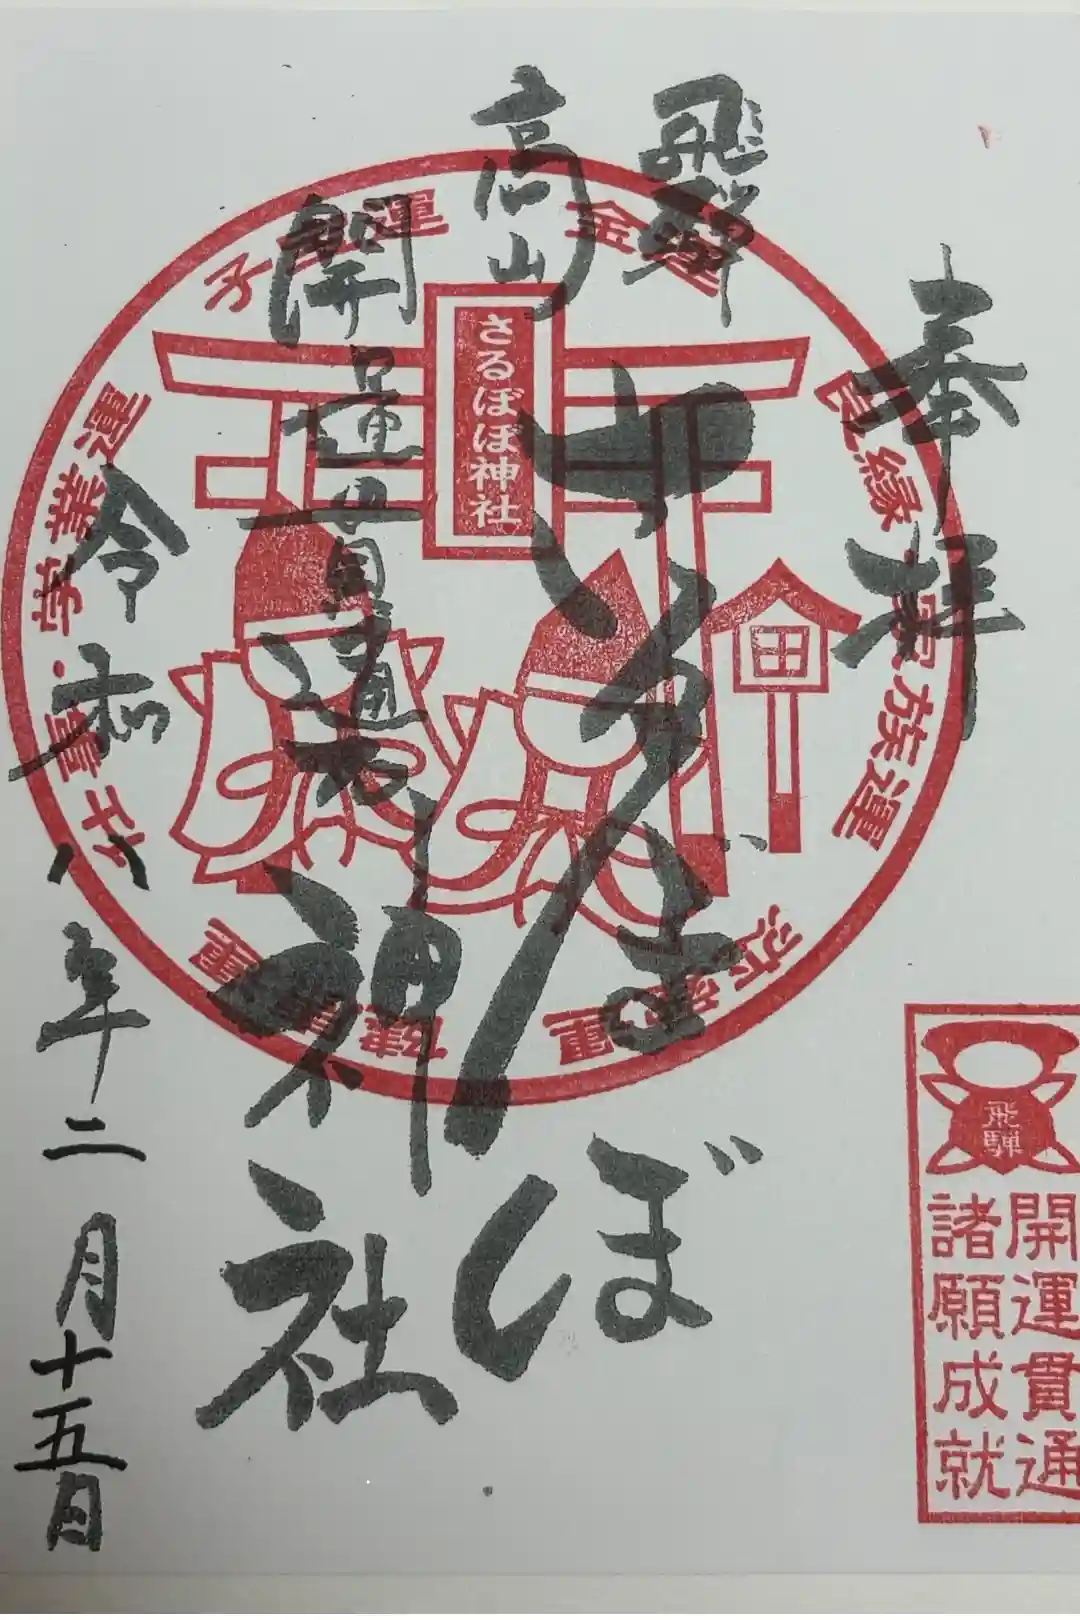 奉拝
飛騨
高山
さるぼぼ
神社
開運貫通
令和八年二月十五日
さるぼぼ神社
金運
良縁
家族運
健康運
仕事
学業運
子宝運
飛騨
開運貫通
諸願成就